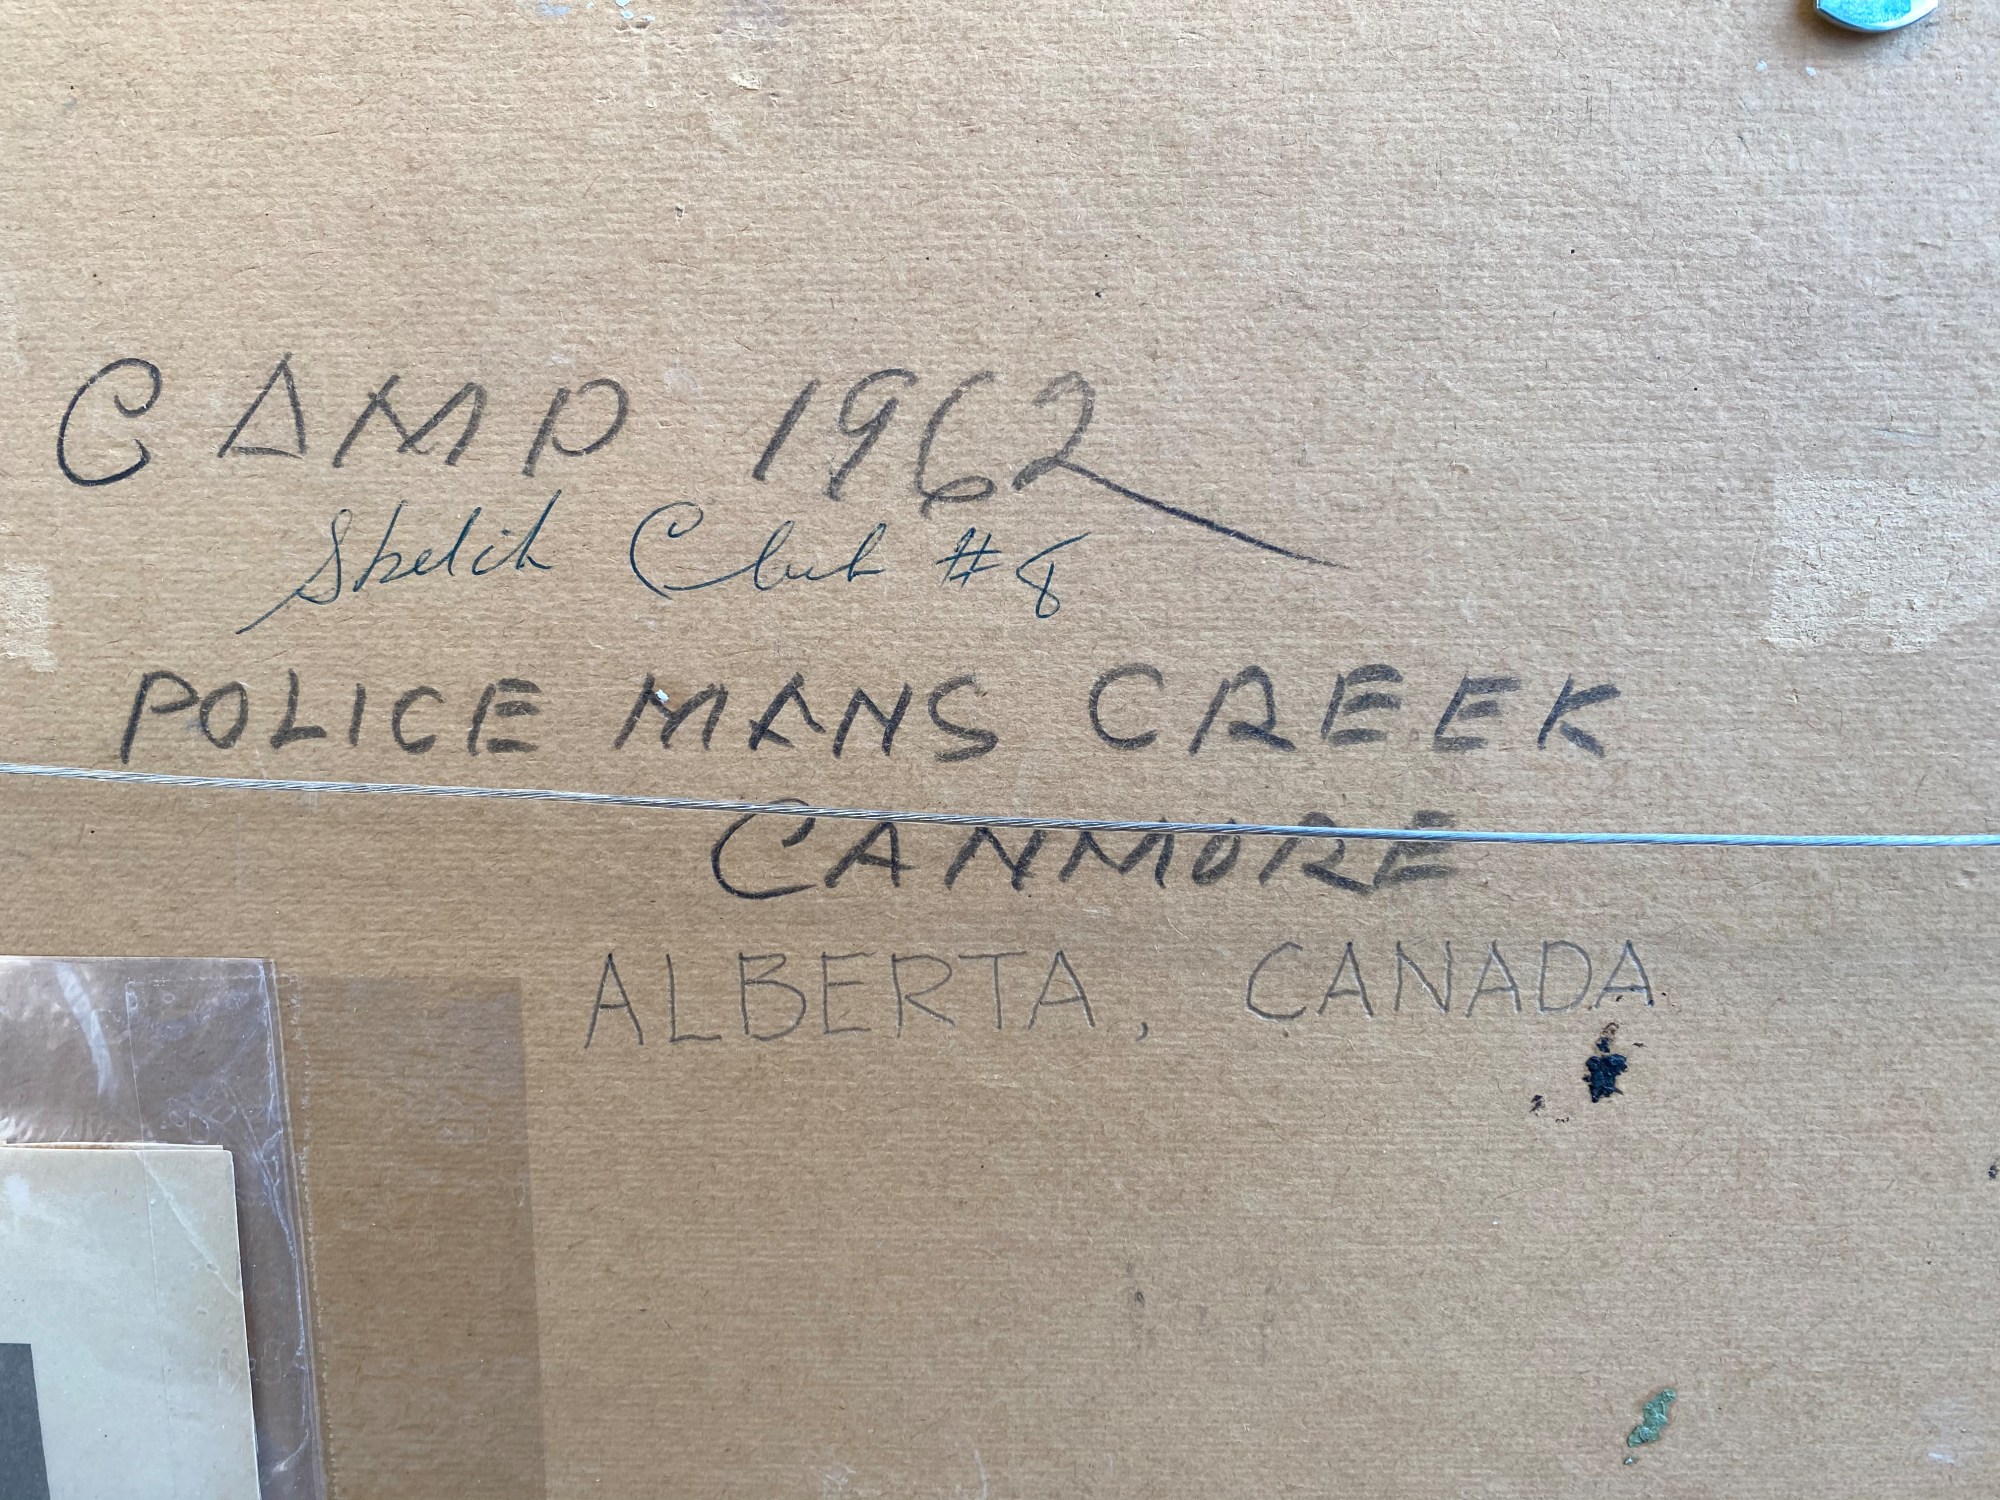 CAMP 1962
Sketch Club #8
POLICE MANS CREEK
CANMORE
ALBERTA, CANADA